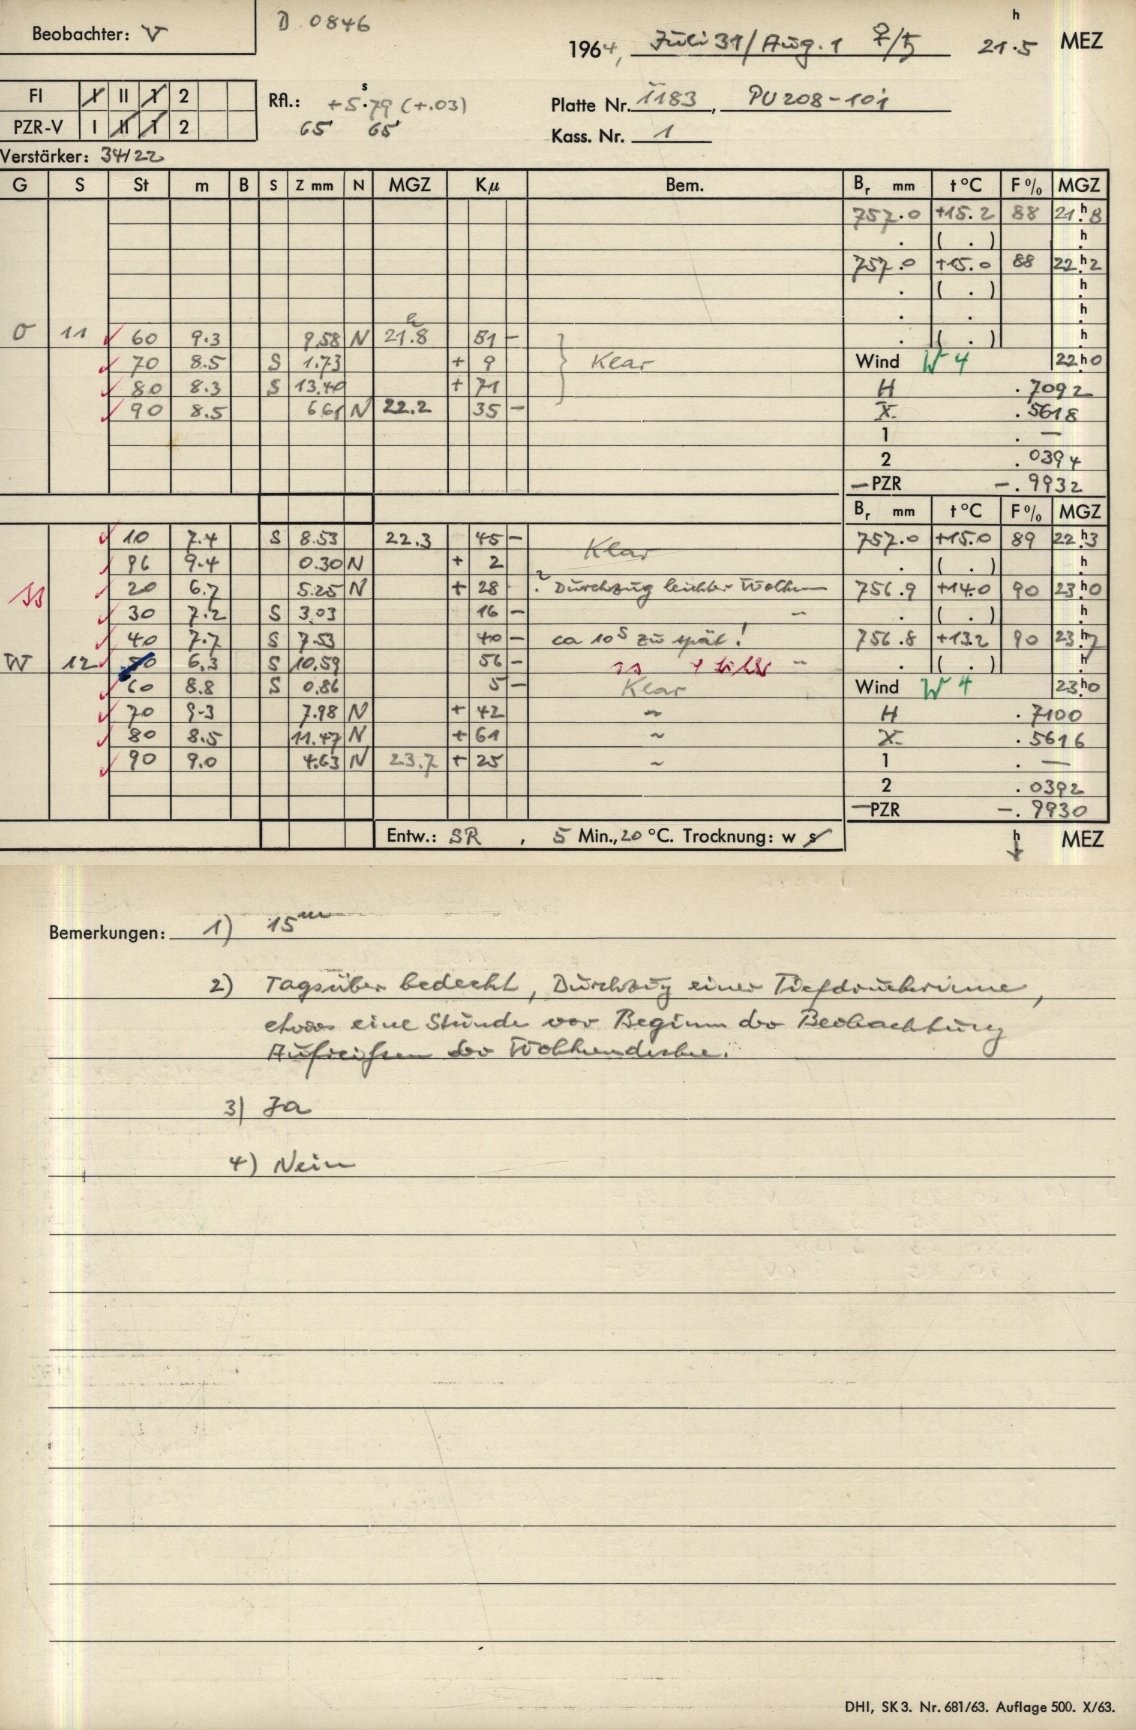 Beobachter: V
D 0846
1964, Juli 31/Aug. 1 ♀/♄ 21ʰ.5 MEZ
FI I II 1 2
PZR-V I II 1 2
Rfl.: +5ˢ.79 (+.03)
65 65
Platte Nr. 1183, PU208-101
Kass. Nr. 1
Verstärker: 34/22
G S St m B S Z mm N MGZ Kμ Bem. Bᵣ mm t °C F % MGZ
757.0 +15.2 88 21ʰ.8
. ( . ) ʰ.
757.0 +15.0 88 22ʰ.2
. ( . ) ʰ.
. . ʰ.
O 11 60 9.3 9.58 N 21ʰ.8 51 – ( . ) ʰ.
70 8.5 S 1.73 + 9 Klar Wind W 4 22ʰ0
80 8.3 S 13.40 + 71 H .7092
90 8.5 6.61 N 22.2 35 – X .5618
1 . —
2 .0394
–PZR –.9932
Bᵣ mm t °C F % MGZ
10 7.4 S 8.53 22.3 45 – Klar 757.0 +15.0 89 22ʰ.3
96 9.4 0.30 N + 2 . ( . ) ʰ.
20 6.7 5.25 N + 28 ? Durchzug leichter Wolken 756.9 +14.0 90 23ʰ.0
30 7.2 S 3.03 16 – ~ . ( . ) ʰ.
40 7.7 S 7.53 40 – ca 10ˢ zu spät! 756.8 +13.2 90 23ʰ.7
W 12 50 6.3 S 10.59 56 – ~ . ( . ) ʰ.
60 8.8 S 0.86 5 – Klar Wind W 4 23ʰ.0
70 9.3 7.98 N + 42 ~ H .7100
80 8.5 11.47 N + 61 ~ X .5616
90 9.0 4.63 N 23.7 + 25 ~ 1 . —
2 .0392
–PZR –.9930
Entw.: SR , 5 Min., 20 °C. Trocknung: w s ʰ MEZ
Bemerkungen: 1) 15ᵐ
2) Tagsüber bedeckt, Durchzug einer Tiefdruckrinne,
etwa eine Stunde vor Beginn der Beobachtung
Aufreißen der Wolkendecke.
3) Ja
4) Nein
DHI, SK 3. Nr. 681/63. Auflage 500. X/63.